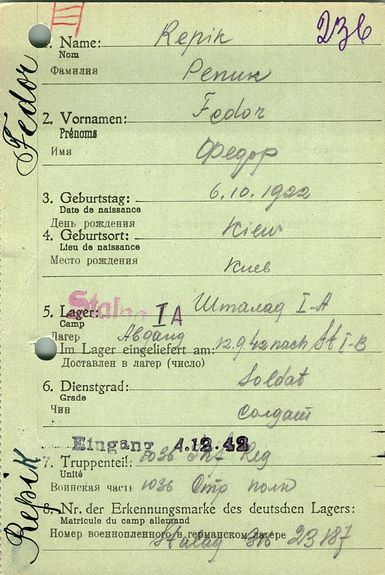 236
Fedor
1. Name: Repik
Nom
Фамилия Репик
2. Vornamen: Fedor
Prénoms
Имя Федор
3. Geburtstag: 6.10.1922
Date de naissance
День рождения
4. Geburtsort: Kiew
Lieu de naissance
Место рождения Киев
5. Lager: Stalag IA Шталаг I-A
Camp
Лагер Abgang 12.9.42 nach St I-B
Im Lager eingeliefert am:
Доставлен в лагер (число)
6. Dienstgrad: Soldat
Grade
Чин солдат
Eingang 4.12.42
7. Truppenteil: 1036 Inf Reg
Unité
Воинская часть 1036 Стр полк
Repik
8. Nr. der Erkennungsmarke des deutschen Lagers:
Matricule du camp allemand
Номер военнопленного в германском лагере
Stalag 23187